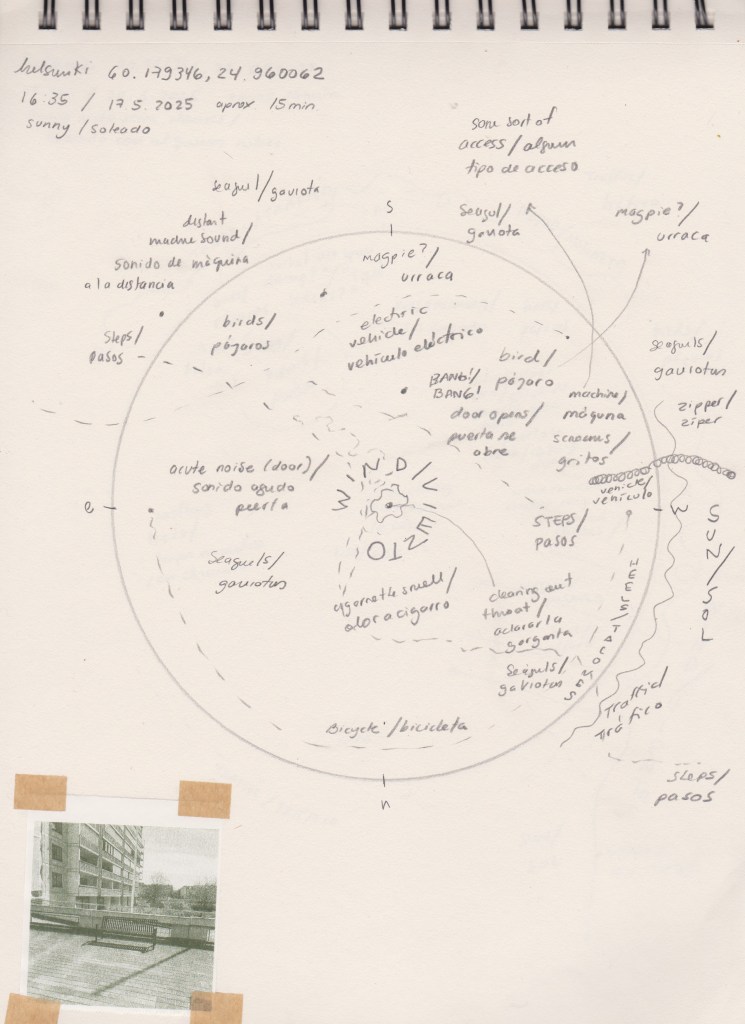 helsinki 60.179346, 24.960062
16:35 / 17.5.2025 aprox 15min
sunny/soleado
some sort of
access/algun
tipo de acceso
seagul/gaviota
s
Seagul/
gaviota
magpie?/
urraca
distant
machine sound/
sonido de máquina
a la distancia
magpie?/
urraca
birds/
pájaros
electric
vehicle/
vehículo eléctrico
steps/
pasos
bird/
pájaro
seagulls/
gaviotas
BANG!/
BANG!
machine/
máquina
zipper/
ziper
door opens/
puerta se
abre
screams/
gritos
acute noise (door)/
sonido agudo
puerta
WIND/VIENTO
vehicle/
vehículo
e
w
STEPS/
pasos
SUN/SOL
Seagulls/
gaviotas
HEELS/TACONES
cigarette smell/
olor a cigarro
clearing out
throat/
aclarar la
garganta
Seaguls/
gaviotas
Traffic/
Tráfico
Bicycle/bicicleta
steps/
pasos
n